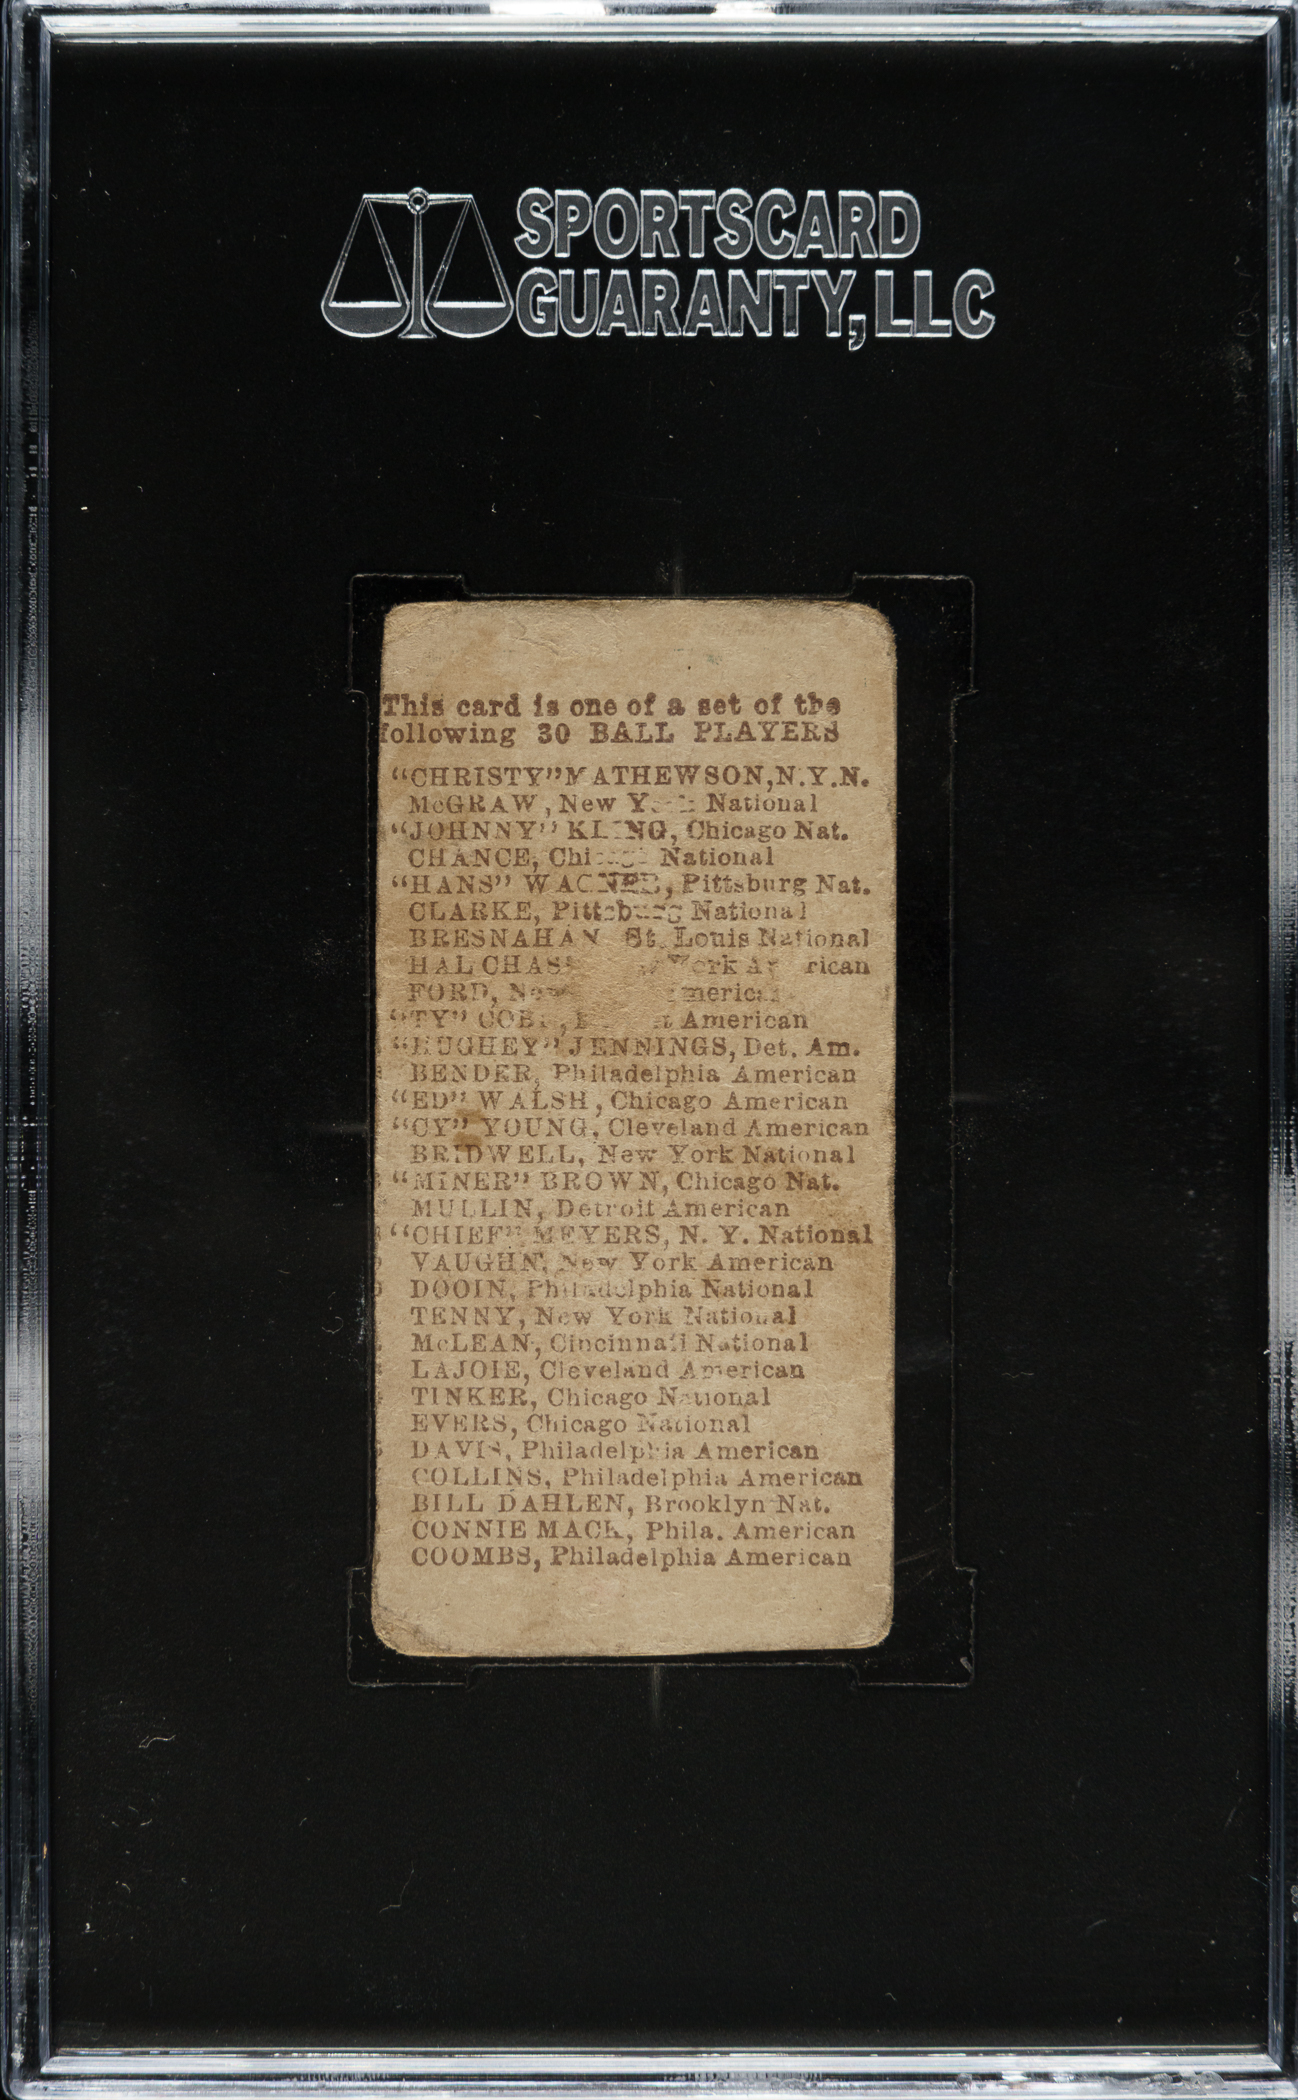 SPORTSCARD
GUARANTY, LLC
This card is one of a set of the
following 30 BALL PLAYERS
“CHRISTY” MATHEWSON, N.Y.N.
McGRAW, New National
“JOHNNY” KLING, Chicago Nat.
CHANCE, National
“HANS” Pittsburg Nat.
CLARKE, Pittsburg National
BRESNAHAN St. Louis National
HAL
FORD,
“TY” American
“HUGHEY” JENNINGS, Det. Am.
BENDER, Philadelphia American
“ED” WALSH, Chicago American
“CY” YOUNG, Cleveland American
BRIDWELL, New York National
“MINER” BROWN, Chicago Nat.
MULLIN, Detroit American
“CHIEF” MEYERS, N. Y. National
VAUGHN, New York American
DOOIN, Philadelphia National
TENNY, New York National
McLEAN, Cincinnati National
LAJOIE, Cleveland American
TINKER, Chicago National
EVERS, Chicago National
DAVIS, Philadelphia American
COLLINS, Philadelphia American
BILL DAHLEN, Brooklyn Nat.
CONNIE MACK, Phila. American
COOMBS, Philadelphia American